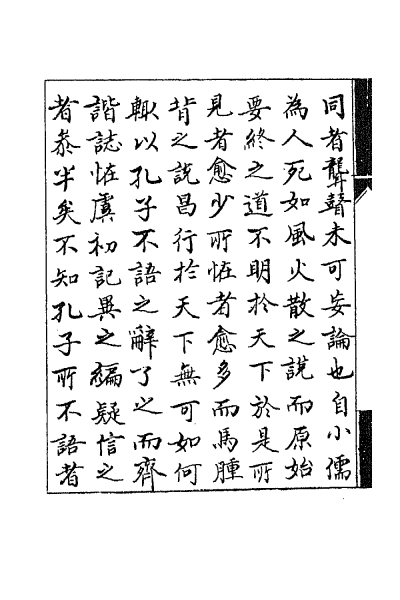 同者聾瞽未可妄論也自小儒
為人死如風火散之說而原始
要終之道不明於天下於是所
見者愈少所恠者愈多而馬腫
背之說昌行於天下無可如何
輙以孔子不語之辭了之而齊
諧誌恠虞初記異之編疑信之
者叅半矣不知孔子所不語者